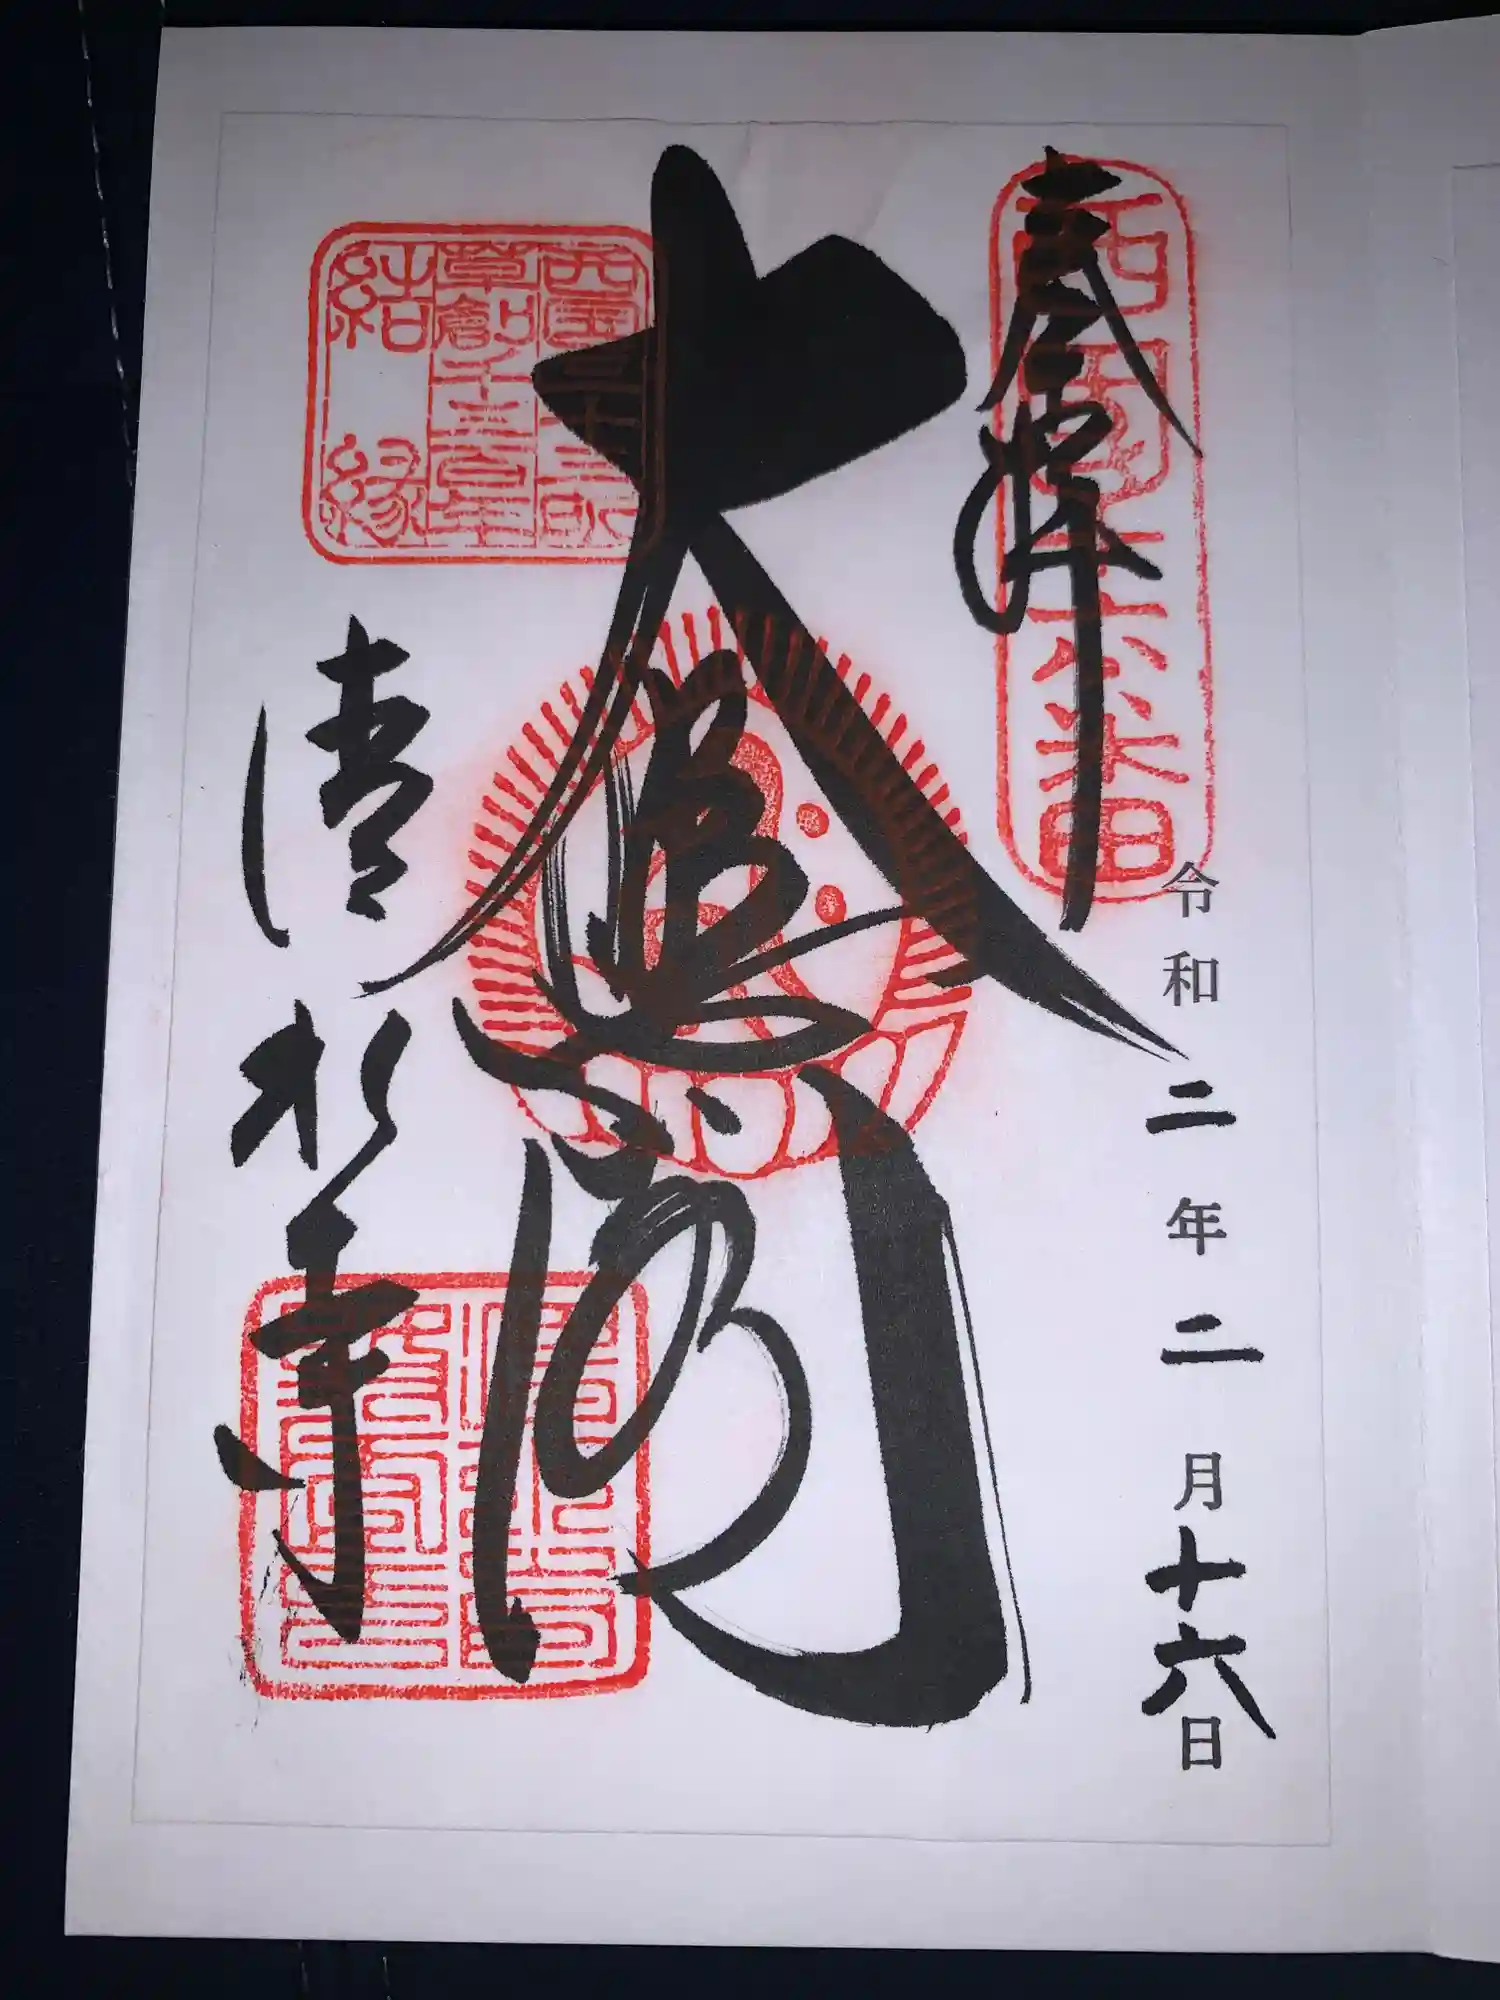 奉拝
西国十六番
令和二年二月十六日
大悲閣
西国三十三所
草創千三百年
結縁
清水寺